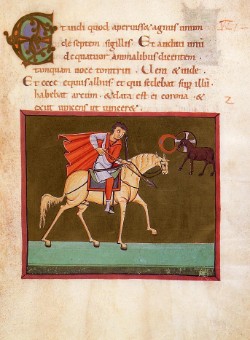 Et uidi quod aperuisset agnus unum
de septem sigillis. Et audiui unū
de quatuor animalibus dicentem
tamquam uoce tonitrui. Ueni & uide.
Et ecce equus albus et qui sedebat sup illū
habebat arcum. & data est ei corona. &
exiit uincens ut uinceret.